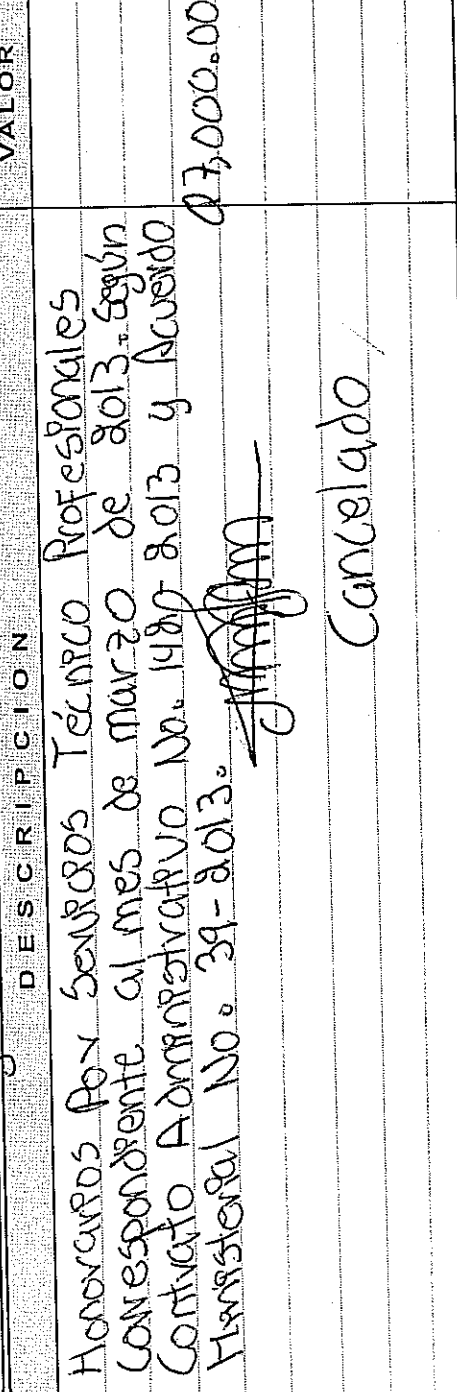 DESCRIPCION VALOR
Honorarios Por Servicios Técnico Profesionales
Correspondiente al mes de marzo de 2013. Según
Contrato Administrativo No. 1480-2013 y Acuerdo Q7,000.00
Ministerial No. 39-2013.
Cancelado